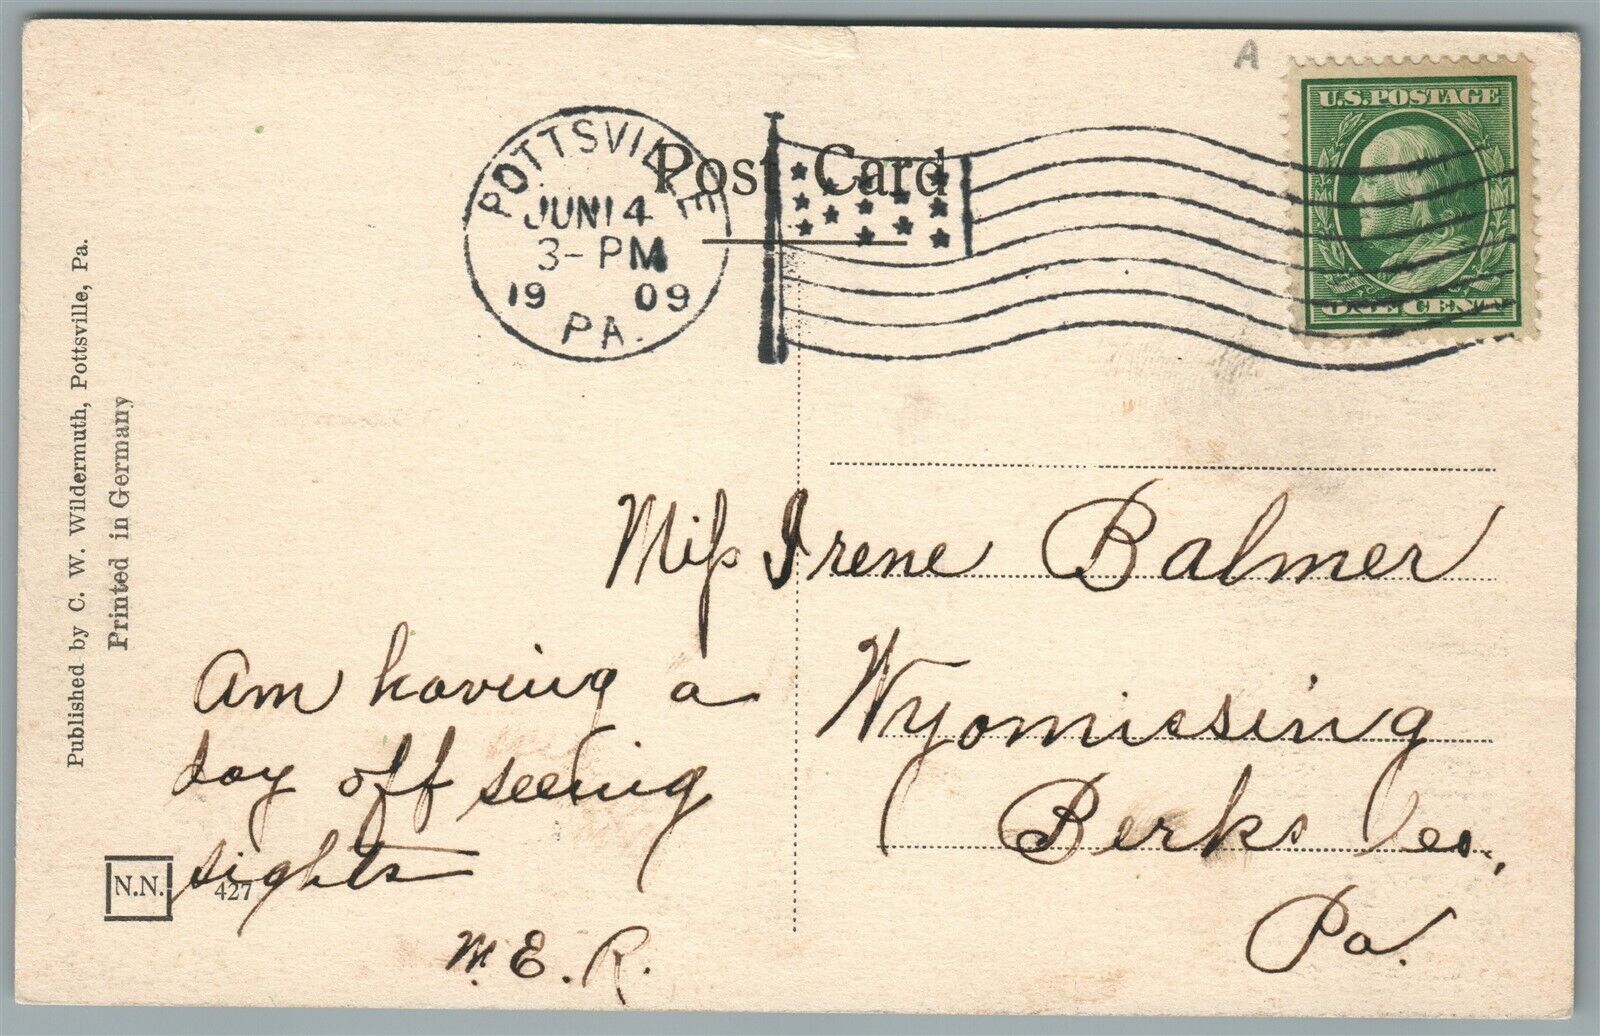 A
U.S. POSTAGE
Post Card
POTTSVILLE
JUN 14
3-PM
19 09
PA.
ONE CENT
Published by C. W. Wildermuth, Pottsville, Pa.
Printed in Germany
Miss Irene Balmer
Wyomissing
Berks Co.,
Pa.
Am having a
day off seeing
sights
M. E. R.
N.N. 427